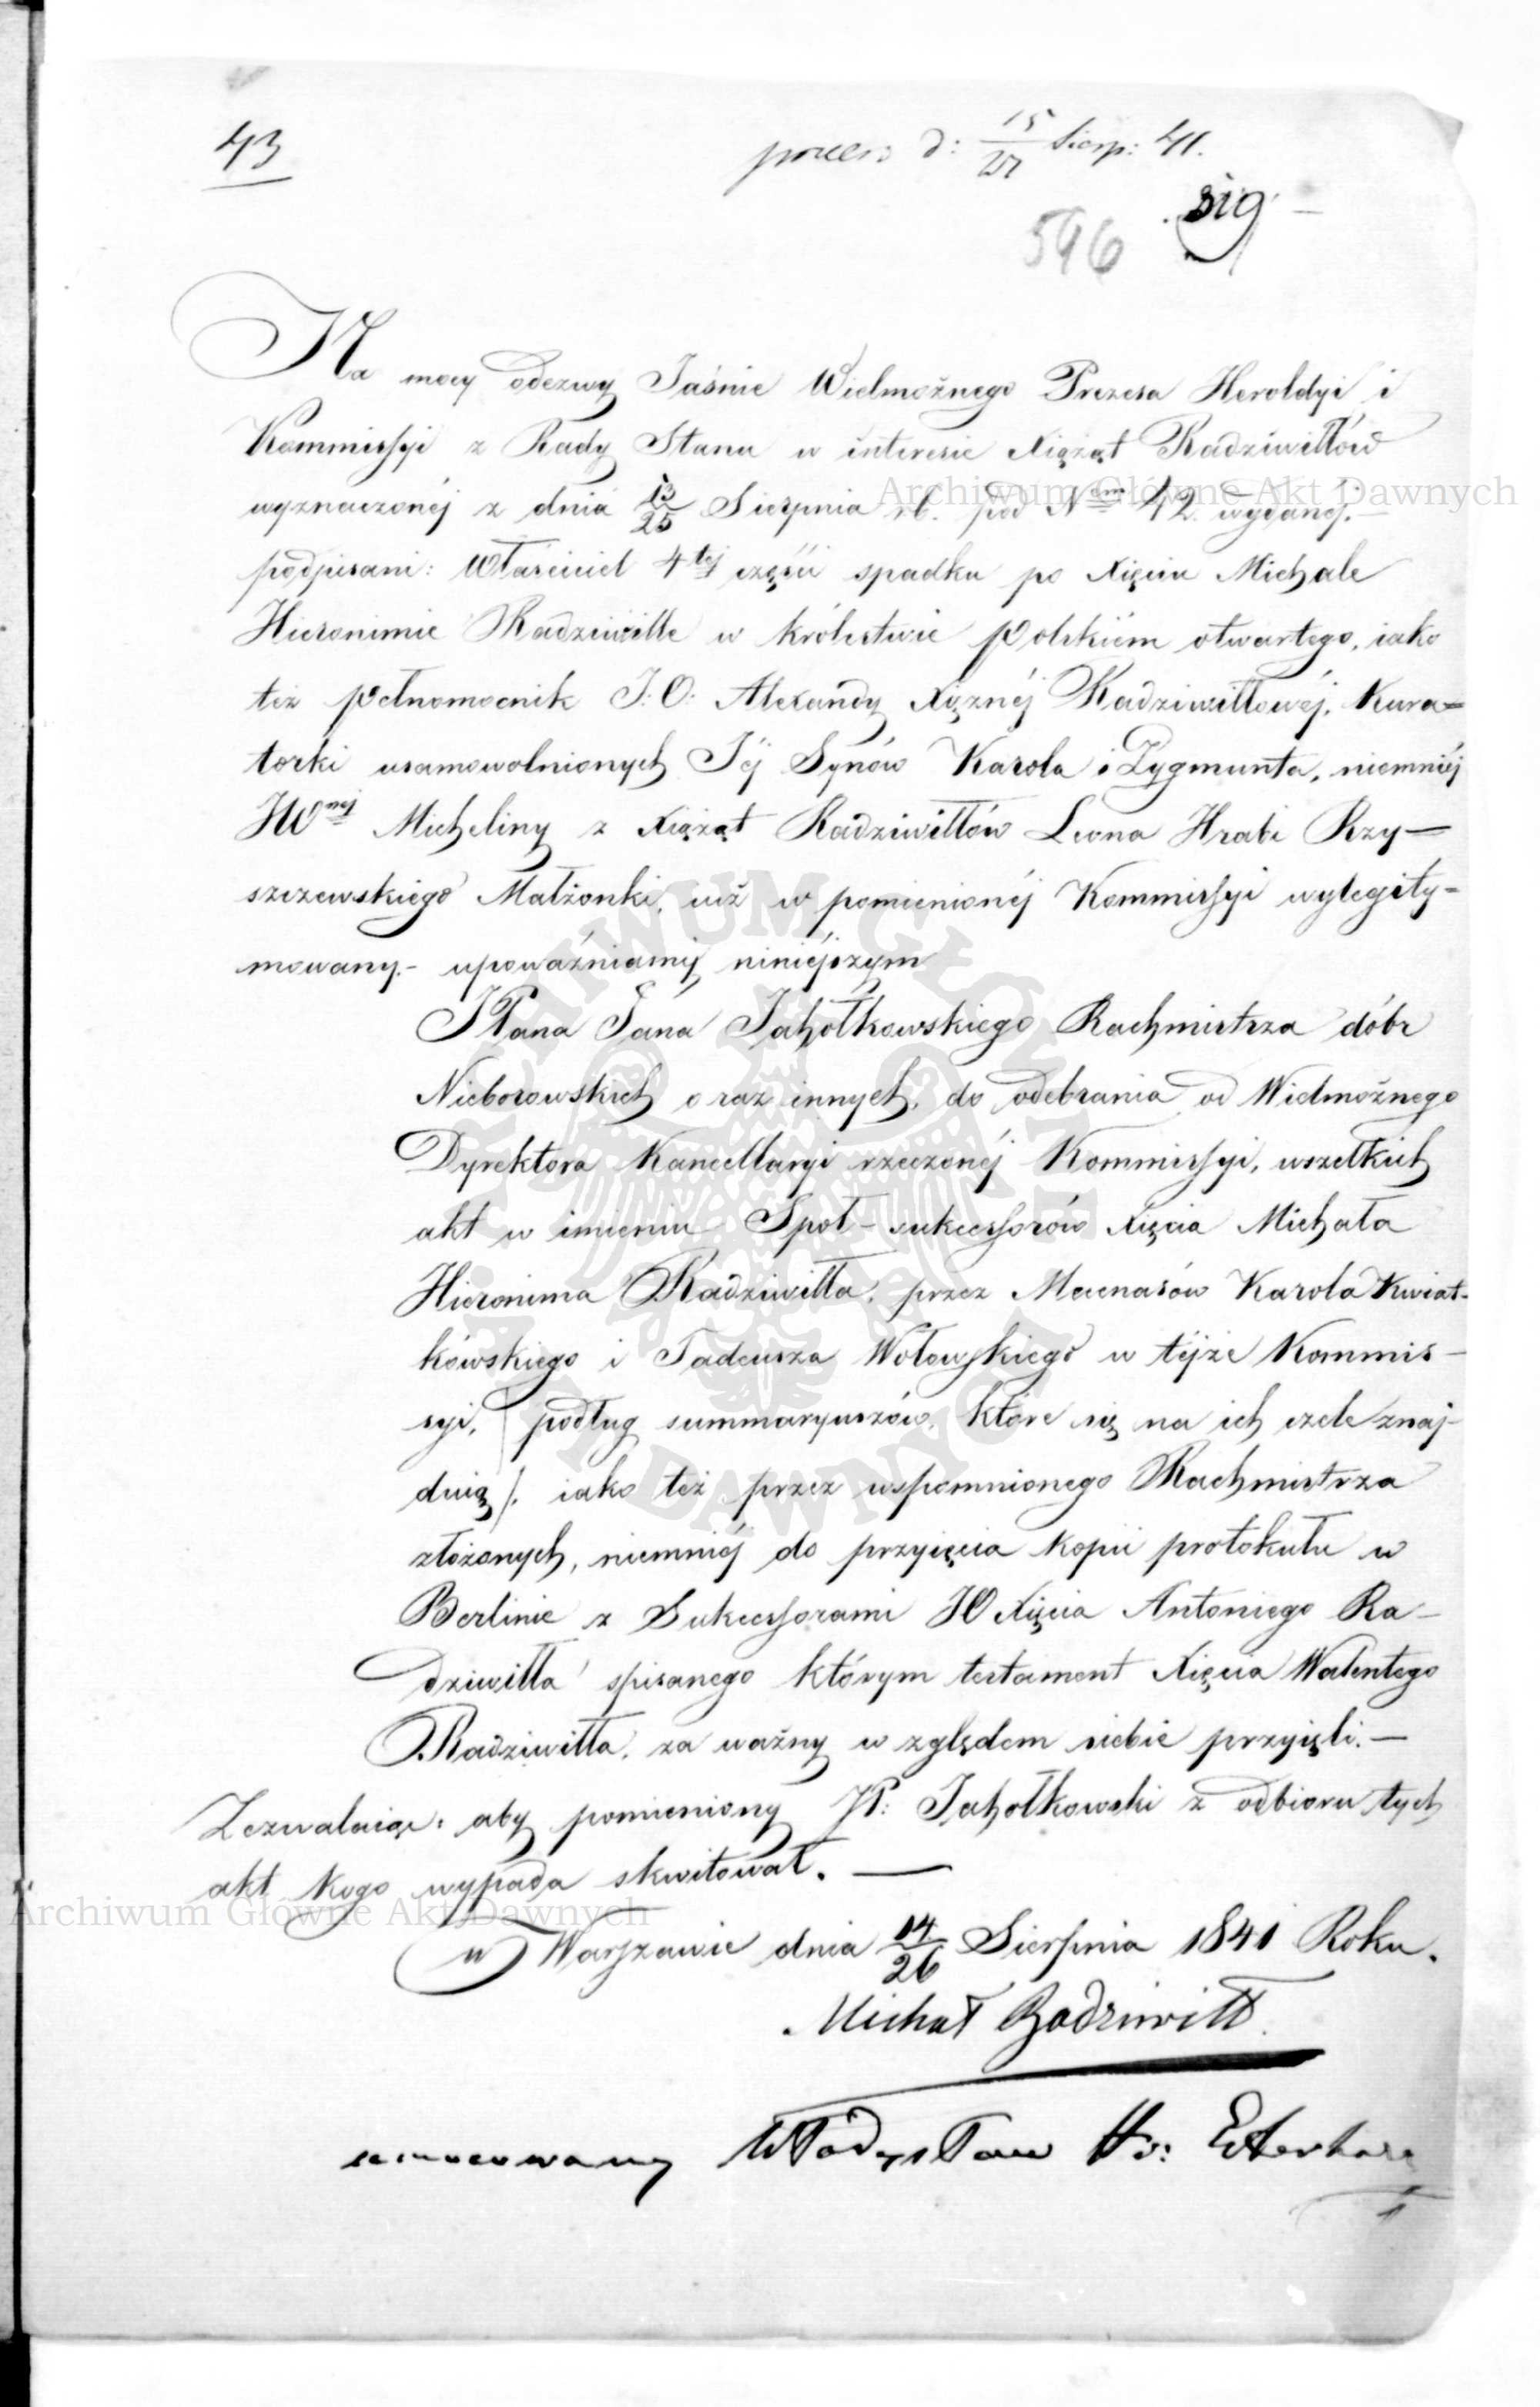 43
d: 15/27 Sierp: 41.
596
Na mocy odezwy Jaśnie Wielmożnego Prezesa Heroldyi i
Kommissyi z Rady Stanu w interesie Xiążąt Radziwiłłów
wyznaczonéj z dnia 13/25 Sierpnia rb. pod Nrm 42. wydanéj.
podpisani: Właściciel 4téj części spadku po Xięciu Michale
Hieronimie Radziwille w królestwie Polskiém otwartego, iako
też pełnomocnik J: O: Alexandy Xiężnéj Radziwiłłowéj, Kura=
torki usamowolnionych Jéj Synów Karola i Zygmunta, niemniéj
JWnéj Micheliny z Xiążąt Radziwiłłów Leona Hrabi Rzy—
szczewskiego Małżonki, iuż w pomienionéj Kommissyi wylegity=
mowany.- upoważniamy niniéjszym
JPana Jana Jahołkowskiego Rachmistrza dóbr
Nieborowskich oraz innych, do odebrania od Wielmożnego
Dyrektora Kancellaryi rzeczonéj Kommissyi, wszelkich
akt w imieniu Społ-sukcessorów Xięcia Michała
Hieronima Radziwiłła, przez Mecenasów Karola Kwiat-
kówskiego i Tadeusza Wołowskiego w téjże Kommis-
syi, /podług summaryuszów, które się na ich czele znaj-
duią/. iako też przez wspomnionego Rachmistrza
złożonych, niemniéj do przyięcia kopii protokułu w
Berlinie z Sukcessorami JO Xięcia Antoniego Ra-
dziwiłła spisanego którym testament Xięcia Walentego
Radziwiłła, za ważny w zględem siebie przyięli.—
Zezwalaiąc, aby pomieniony JP: Jahołkowski z odbioru tych
akt kogo wypada skwitował. —
w Warszawie dnia 14/26 Sierpnia 1841 Roku.
Michał Radziwiłł
Władysław Hr:
Archiwum Główne Akt Dawnych
Archiwum Główne Akt Dawnych
ARCHIWUM GŁÓWNE AKT DAWNYCH